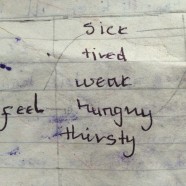 sick
tired
weak
feel hungry
thirsty